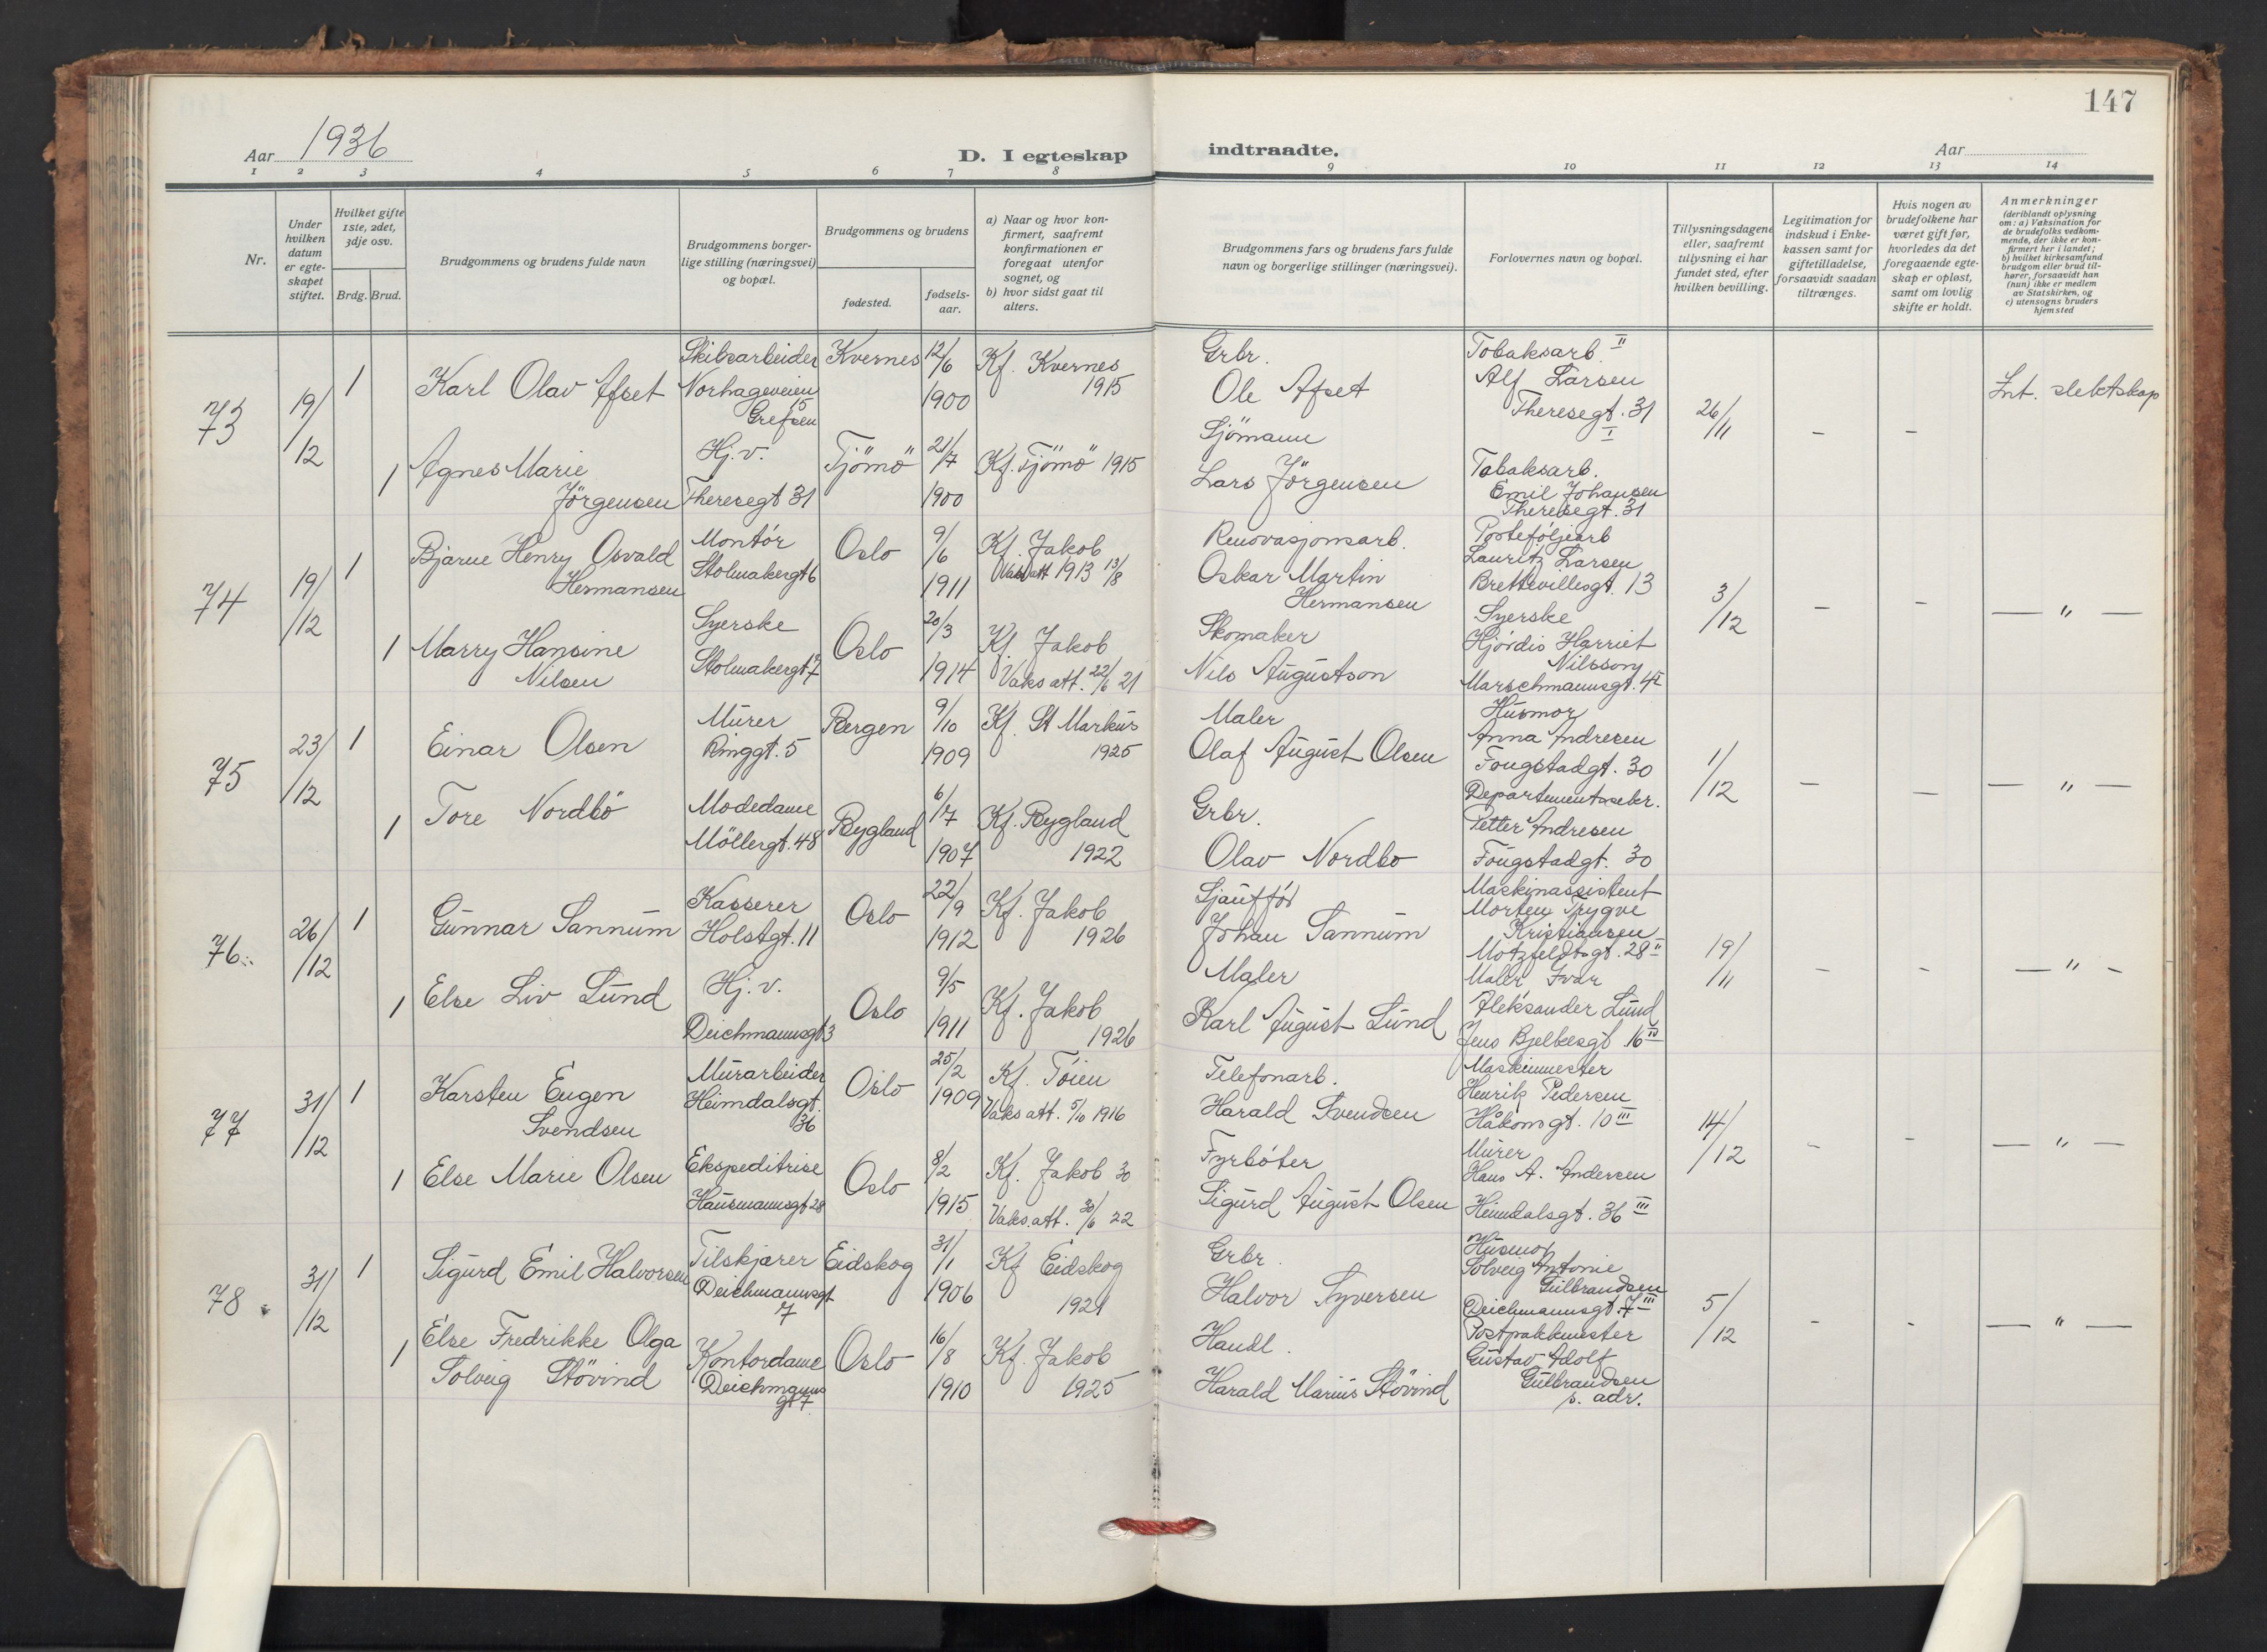 147
Aar 1936
D. I egteskap indtraadte.
Aar
1 2 3 4 5 6 7 8 9 10 11 12 13 14
Nr.
Under hvilken datum er egteskapet stiftet.
Hvilket gifte 1ste, 2det, 3dje osv.
Brdg. Brud.
Brudgommens og brudens fulde navn
Brudgommens borgerlige stilling (næringsvei) og bopæl.
Brudgommens og brudens
fødested.
fødselsaar.
a) Naar og hvor konfirmert, saafremt konfirmationen er foregaat utenfor sognet, og
b) hvor sidst gaat til alters.
Brudgommens fars og brudens fars fulde navn og borgerlige stillinger (næringsvei).
Forlovernes navn og bopæl.
Tillysningsdagene eller, saafremt tillysning ei har fundet sted, efter hvilken bevilling.
Legitimation for indskud i Enkekassen samt for giftetilladelse, forsaavidt saadan tiltrænges.
Hvis nogen av brudefolkene har været gift før, hvorledes da det foregaaende egteskap er opløst, samt om lovlig skifte er holdt.
Anmerkninger (deriblandt oplysning om: a) Vaksination for de brudefolks vedkommende, der ikke er konfirmert her i landet; b) hvilket kirkesamfund brudgom eller brud tilhører, forsaavidt han (hun) ikke er medlem av Statskirken, og c) utensogns bruders hjemsted
73
19/12
1
Karl Olav Afset
Skibsarbeider
Norhageveien 15
Grefsen
Kvernes
12/6 1900
Kf. Kvernes 1915
Grbr.
Ole Afset
Tobaksarb. II
Alf Larsen
Theresegt. 31 I
26/11
–
–
Int. slektskap
1
Agnes Marie
Jörgensen
Hj. v.
Theresegt 31
Tjömö
21/7 1900
Kf. Tjömö 1915
Sjömann
Lars Jörgensen
Tobaksarb.
Emil Johansen
Theresegt. 31
74
19/12
1
Bjarne Henry Osvald
Hermansen
Montör
Stolmakergt 6
Oslo
9/6 1911
Kf. Jakob
Vaks att 1913 13/8
Renovasjonsarb.
Oskar Martin
Hermansen
Porteföljearb
Lauritz Larsen
Brettevillesgt. 13
3/12
–
–
— " —
1
Marry Hansine
Nilsen
Syerske
Stolmakergt 7
Oslo
20/3 1914
Kf. Jakob
Vaks att. 22/6 21
Skomaker
Nils Augustson
Syerske
Hjördis Harriet
Nilsson
Marschmannsgt. 4 I
75
23/12
1
Einar Olsen
Murer
Ringgt. 5
Bergen
9/10 1909
Kf. St Markus
1925
Maler
Olaf August Olsen
Husmor
Anna Andresen
Fougstadgt. 30
1/12
–
–
— " —
1
Tore Nordbö
Modedame
Möllergt. 48
Bygland
6/7 1907
Kf. Bygland
1922
Grbr.
Olav Nordbo
Departementssekr.
Petter Andresen
Fougstadgt. 30
76
26/12
1
Gunnar Sannum
Kasserer
Holstgt. 11
Oslo
22/9 1912
Kf. Jakob
1926
Sjauffør
Johan Sannum
Maskinassistent
Morten Trygve
Kristiansen
Motzfeldtsgt. 28 II
19/11
–
–
— " –
1
Else Liv Lund
Hj. v.
Deichmannsgt 3
Oslo
9/5 1911
Kf. Jakob
1926
Maler
Karl August Lund
Maler Ivar
Aleksander Lund
Jens Bjelkesgt 16 IV
77
31/12
1
Karsten Eugen
Svendsen
Murarbeider
Heimdalsgt. 36
Oslo
25/2 1909
Kf. Töien
Vaks att. 5/10 1916
Telefonarb.
Harald Svendsen
Maskinmester
Henrik Pedersen
Håkonsgt. 10 III
14/12
–
–
— " —
1
Else Marie Olsen
Ekspeditrise
Hausmannsgt 28
Oslo
8/2 1915
Kf. Jakob 30
Vaks. att. 30/6 22
Fyrböter
Sigurd August Olsen
Murer
Hans A. Andersen
Heimdalsgt. 36 III
78
31/12
1
Sigurd Emil Halvorsen
Tilskjærer
Deichmannsgt 7
Eidskog
31/1 1906
Kf Eidskog
1921
Grbr.
Halvor Syversen
Husmor
Solveig Antonie
Gulbrandsen
Deichmannsgt. 7 III
5/12
–
–
— " —
1
Else Fredrikke Olga
Solveig Stövind
Kontordame
Deichmanns
gt 7
Oslo
16/8 1910
Kf. Jakob
1925
Handl.
Harald Marius Stövind
Postpakkmester
Gustav Adolf
Gulbrandsen
s. adr.